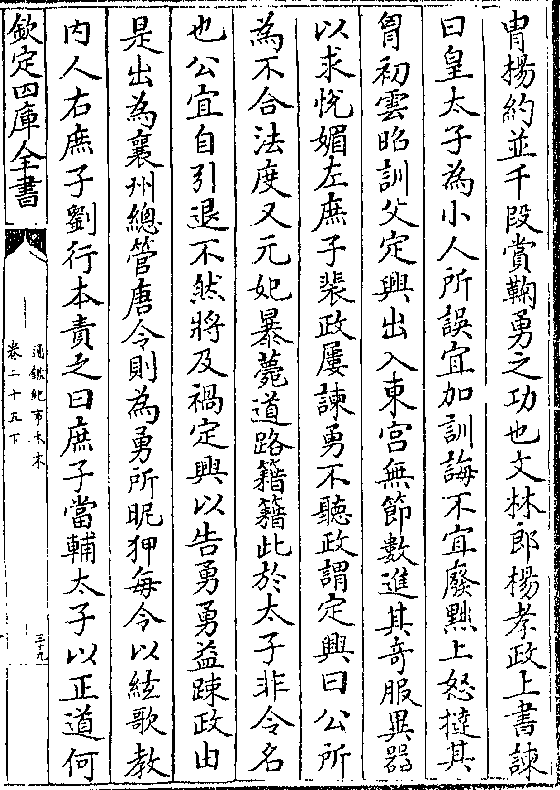 冑楊約並千段賞鞠勇之功也文林郎楊孝政上書諫
曰皇太子為小人所誤宜加訓誨不宜廢黜上怒撻其
胷初雲昭訓父定興出入東宫無節數進其奇服異器
以求悅媚左庶子裴政屢諫勇不聽政謂定興曰公所
為不合法度又元妃暴薨道路籍籍此於太子非令名
也公宜自引退不然將及禍定興以告勇勇益踈政由
是出為襄州總管唐令則為勇所昵狎每令以絃歌教
内人右庶子劉行本責之曰庶子當輔太子以正道何
欽定四庫全書
通鑑紀事本末
卷二十五下
三十九